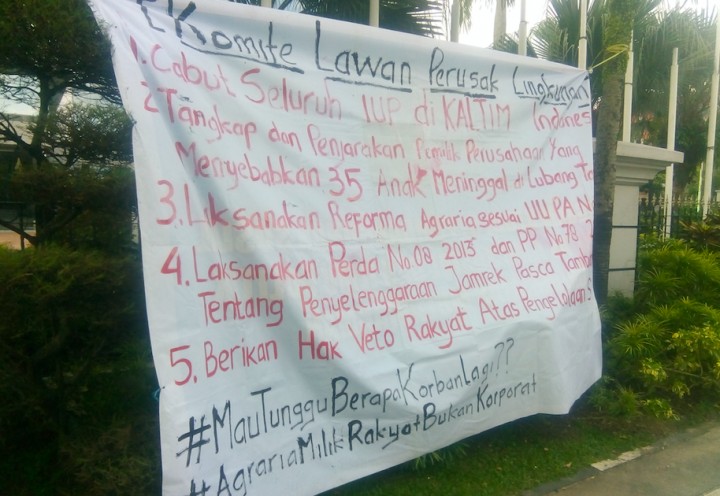 [Komite Lawan Perusak Lingkungan
1. Cabut Seluruh IUP di KALTIM Indones
2. Tangkap dan Penjarakan Pemilik Perusahaan Yang
Menyebabkan 35 Anak Meninggal di Lubang Ta
3. Liksanakan Reforma Agraria sesuai UU PA N
4. Laksanakan Perda No.08 2013 dan PP No.78
Tentang Penyelenggaraan Jamrek Pasca Tamba
5. Berikan Hak Veto Rakyat Atas Pengelolaan S
#MauTungguBerapaKorbanLagi??
#AgrariaMilikRakyatBukanKorporat